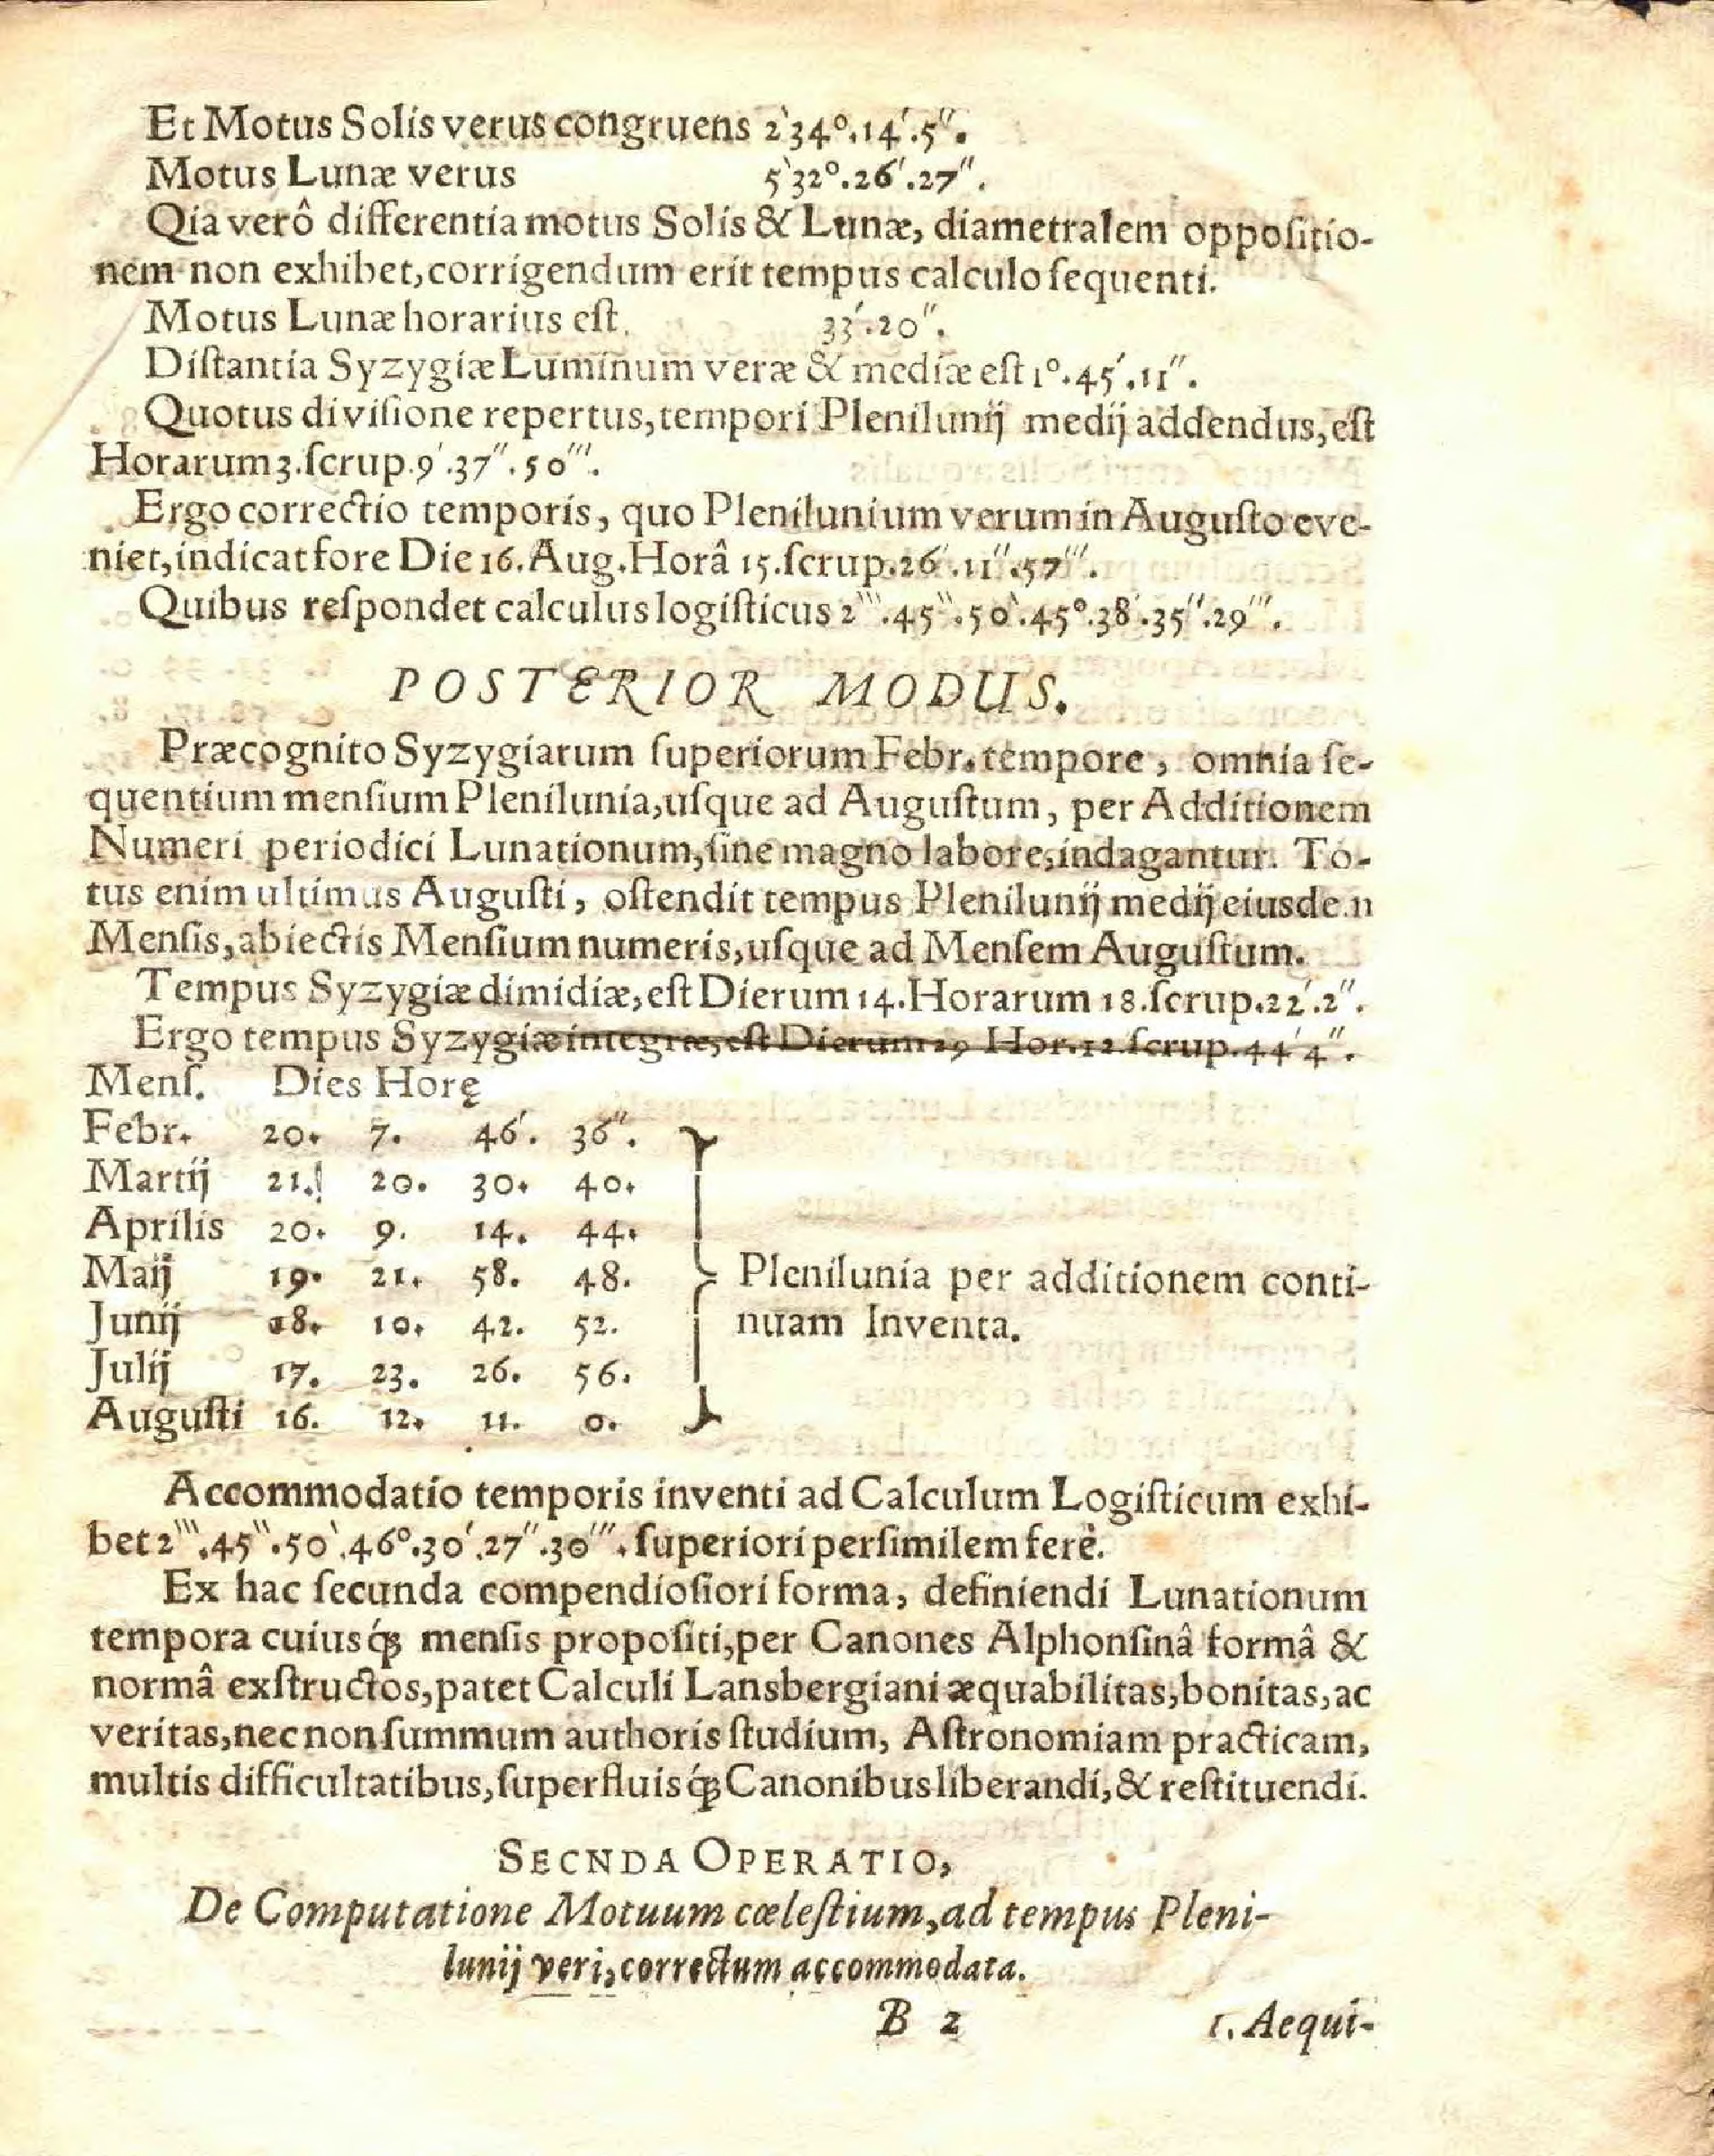 Et Motus Solis verus congruens 2‵34°.14′.5″.
Motus Lunæ verus 5‵32°.26′.27″.
Qia verô differentia motus Solis & Lunæ, diametralem oppoſitio-
nem non exhibet, corrigendum erit tempus calculo ſequenti.
Motus Lunæ horarius eſt. 33′.20″.
Diſtantia Syzygiæ Luminum veræ & mediæ eſt 1°.45′.11″.
Quotus diviſione repertus, tempori Plenilunij medij addendus, eſt
Horarum 3. ſcrup. 9′.37″.50‴.
Ergo correctio temporis, quo Plenilunium verum in Auguſto eve-
niet, indicat fore Die 16. Aug. Horâ 15. ſcrup. 26′.11″.57‴.
Quibus reſpondet calculus logiſticus 2‷.45‶.50‵.45°.38′.35″.29‴.
POSTERIOR MODUS.
Præcognito Syzygiarum ſuperiorum Febr. tempore, omnia ſe-
quentium menſium Plenilunia, uſque ad Auguſtum, per Additionem
Numeri periodici Lunationum, ſine magno labore, indagantur. To-
tus enim ultimus Auguſti, oſtendit tempus Plenilunij medij eiusdem
Menſis, abiectis Menſium numeris, uſque ad Menſem Auguſtum.
Tempus Syzygiæ dimidiæ, eſt Dierum 14. Horarum 18. ſcrup. 22′.2″.
Ergo tempus Syzygiæ integræ, eſt Dierum 29 Hor. 12. ſcrup. 44′4″.
Menſ. Dies Horę
Febr. 20. 7. 46′. 36″.
Martij 21. 20. 30. 40.
Aprilis 20. 9. 14. 44.
Maij 19. 21. 58. 48.
Junij 18. 10. 42. 52.
Julij 17. 23. 26. 56.
Auguſti 16. 12. 11. 0.
Plenilunia per additionem conti-
nuam Inventa.
Accommodatio temporis inventi ad Calculum Logiſticum exhi-
bet 2‷.45‶.50‵.46°.30′.27″.30‴. ſuperiori perſimilem ferè.
Ex hac ſecunda compendioſiori forma, definiendi Lunationum
tempora cuiusq́ꝫ menſis propoſiti, per Canones Alphonſinâ formâ &
normâ exſtructos, patet Calculi Lansbergiani æquabilitas, bonitas, ac
veritas, nec non ſummum authoris ſtudium, Aſtronomiam practicam,
multis difficultatibus, ſuperfluisq́ꝫ Canonibus liberandi, & reſtituendi.
SECNDA OPERATIO,
De Computatione Motuum cœleſtium, ad tempus Pleni-
lunij veri, correctum accommodata.
B 2 1. Aequi-